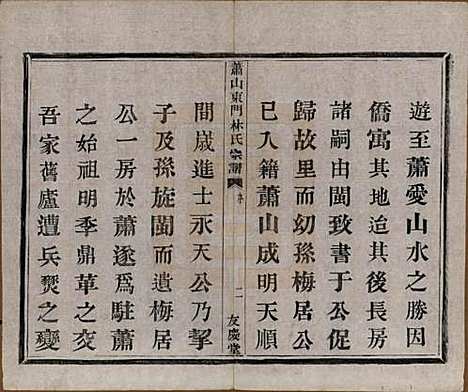 遊至蕭愛山水之勝因
僑寓其地迨其後長房
諸嗣由閩致書于公促
歸故里而幼孫梅居公
已入籍蕭山成明天順
蕭山東門林氏宗譜
序
二
友慶堂
間歲進士永天公乃挈
子及孫旋閩而遺梅居
公一房於蕭遂爲駐蕭
之始祖明季鼎革之交
吾家舊廬遭兵燹之變